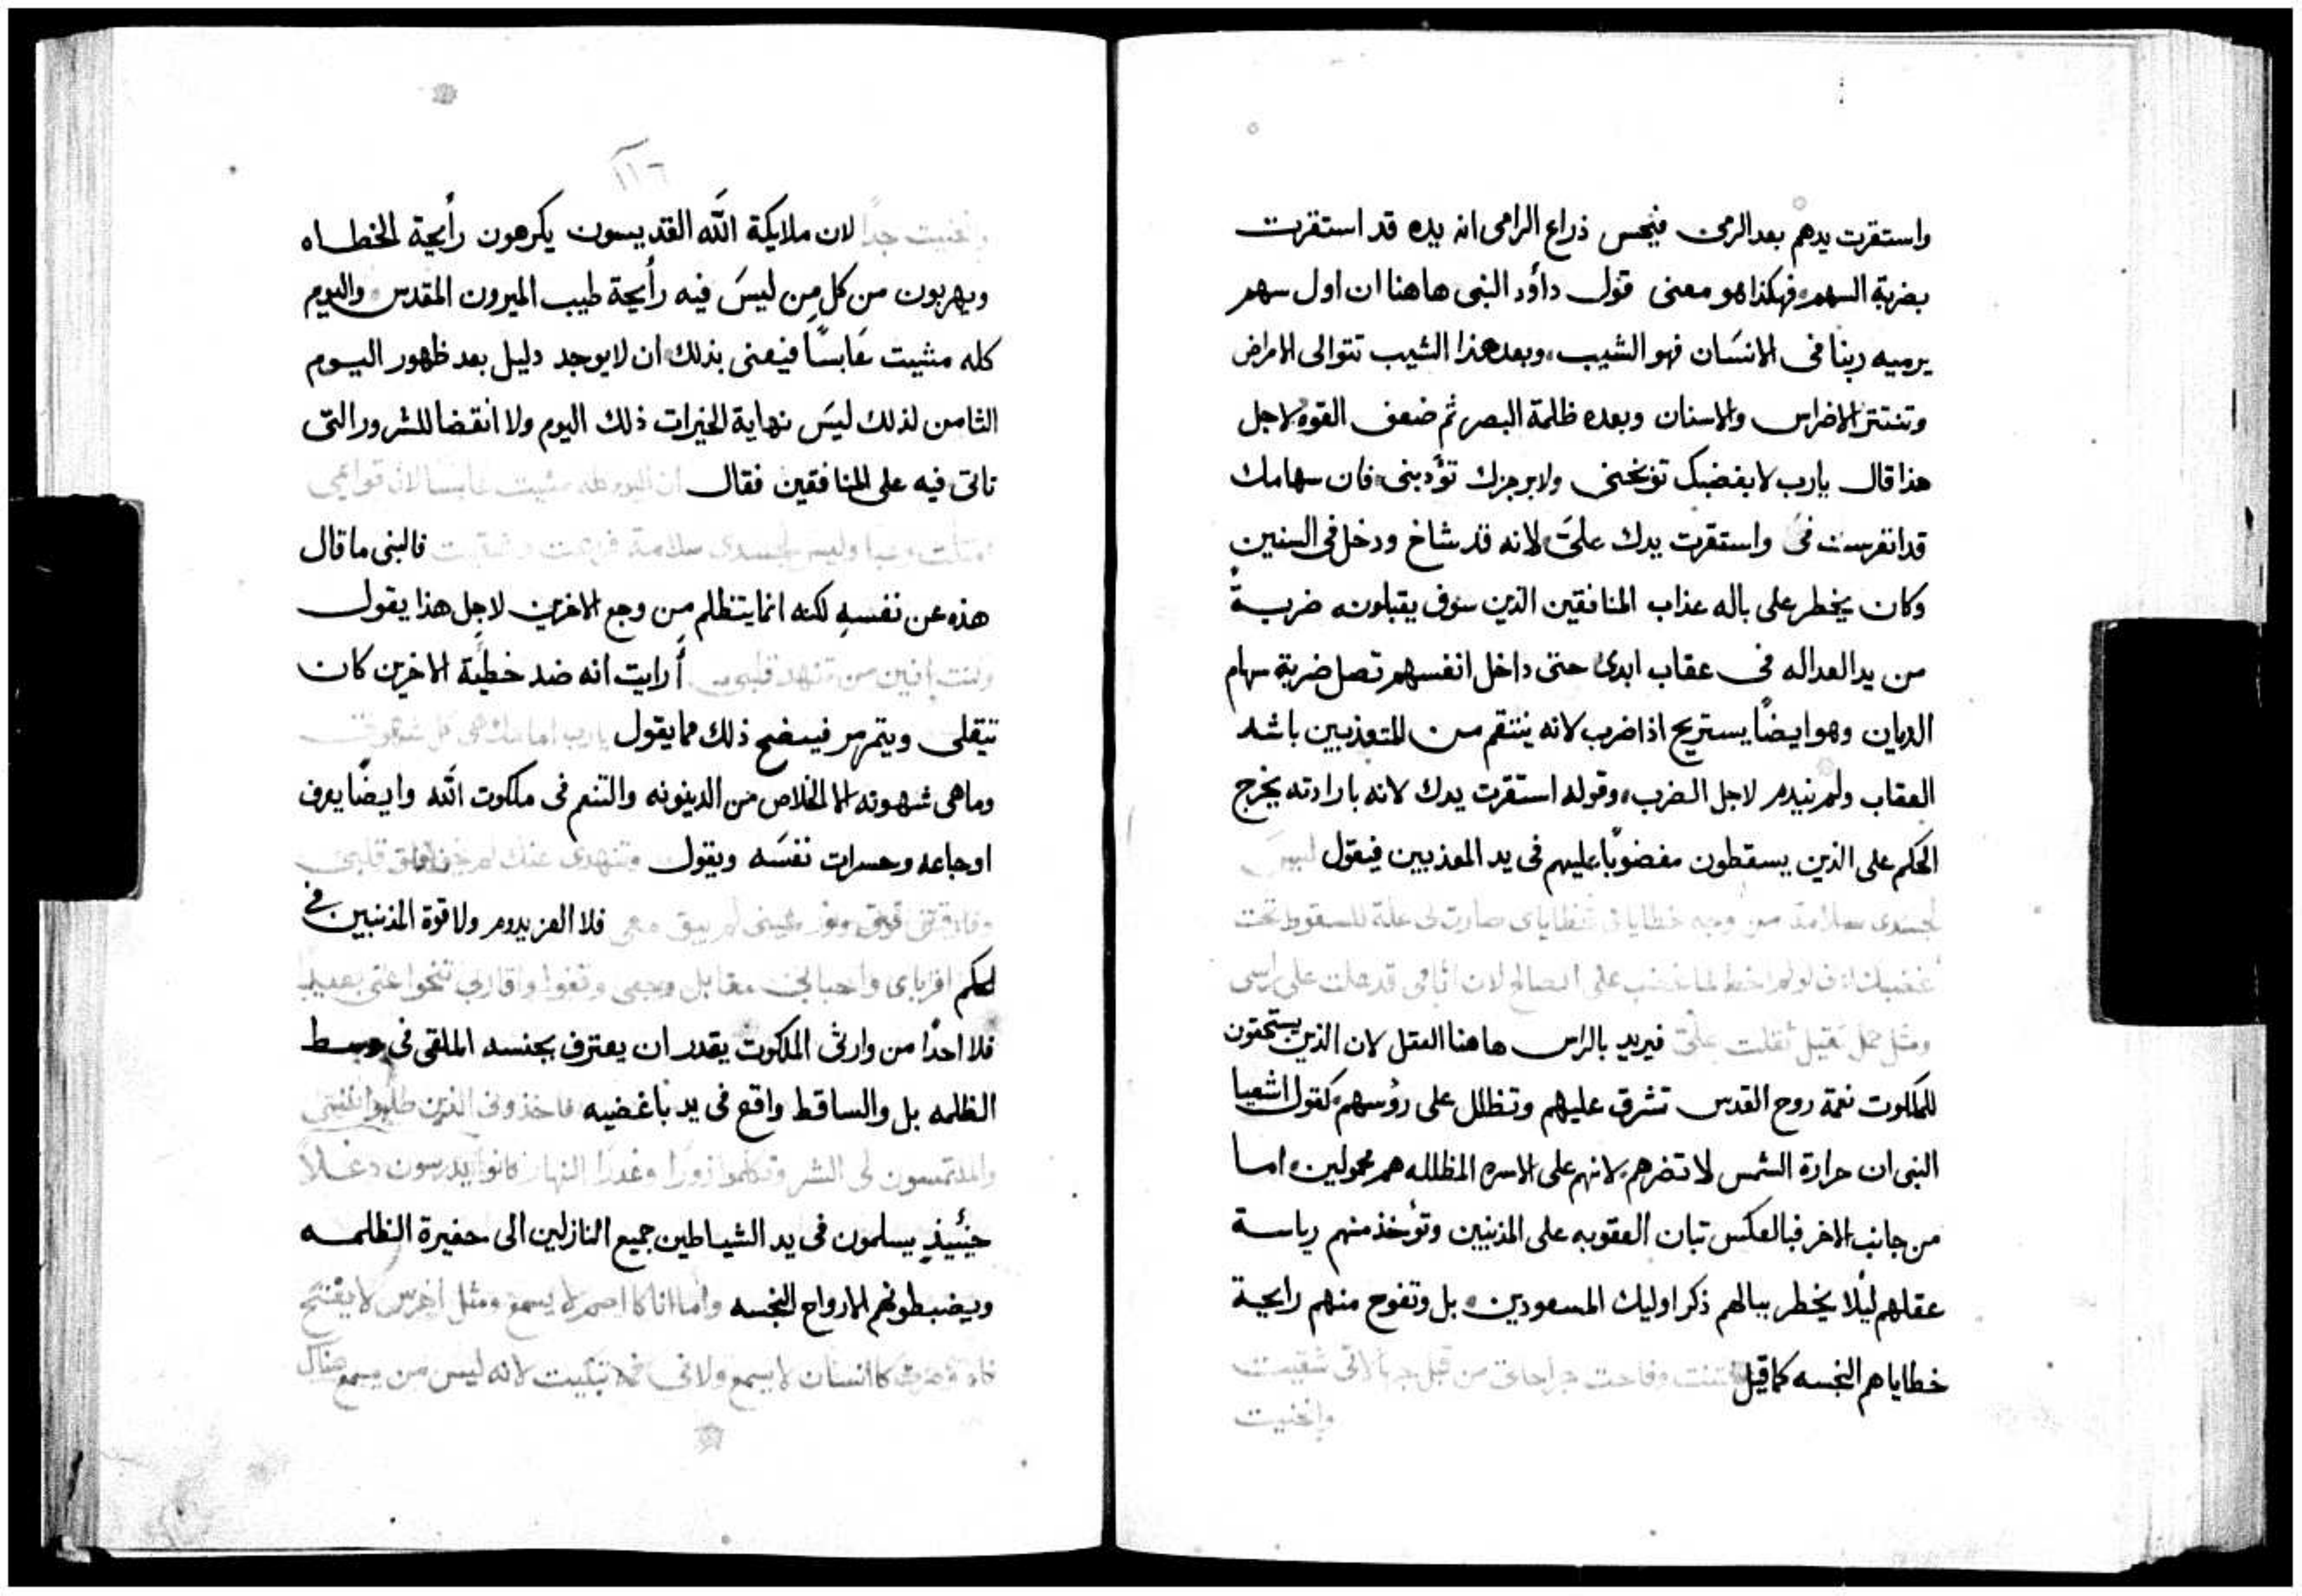 واستقرت يدهم بعد الرمى فيحس ذراع الرامى انه يده قد استقرت
بضربة السهم فهكذا هو معنى قول داؤد النبى هاهنا ان اول سهم
يرميه ربنا فى الانسان فهو الشيب، وبعد هذا الشيب تتوالى الامراض
وتنتثر الاضراس والاسنان وبعده ظلمة البصر ثم ضعف القوه لاجل
هذا قال يارب لا بغضبك توبخنى ولا برجزك تؤدبنى فان سهامك
قد انغرست فى واستقرت يدك علىّ لانه قد شاخ ودخل فى السنين
وكان يخطر على باله عذاب المنافقين الذين سوف يقبلونه ضربةً
من يد العداله فى عقاب ابدى حتى داخل انفسهم تصل ضربة سهام
الديان وهو ايضاً يستريح اذا ضرب لانه ينتقم من المتعذبين باشد
العقاب ولم نيدم لاجل الضرب، وقوله استقرت يدك لانه بارادته يخرج
الحكم على الذين يسقطون مغضوباً عليهم فى يد المعذبين فيقول ليس
لجسدى سلامة من وجه خطاياى فخطاياى صارت لى علة للسقوط تحت
غضبك لو لم اخط لما غضب على الصالح لان اثامى قد علت على راسى
ومثل حمل ثقيل ثقلت علىّ فيريد بالراس هاهنا العقل لان الذين يستحقون
للملكوت نعمة روح القدس تشرق عليهم وتظلل على رؤسهم كقول اشعيا
النبى ان حرارة الشمس لا تضرهم لانهم على الاسره المظلله هم محمولين، اما
من جانب الاخر فبالعكس تبان العقوبه على المذنبين وتؤخذ منهم رياسة
عقلهم ليلا يخطر ببالهم ذكر اوليك المسعودين، بل وتفوح منهم رايحة
خطاياهم النجسه كما قيل نتنت وفاحت جراحاتى من قبل جهالاتى شقيت
وانحنيت
١١٦
وانحنيت جداً لان ملايكة الله القديسون يكرهون رأيحة الخطاه
ويهربون من كل من ليسَ فيه رأيحة طيب الميرون المقدس، واليوم
كله مشيت عَابسًا فيعنى بذلك ان لا يوجد دليل بعد ظهور اليوم
الثامن لذلك ليسَ نهاية لخيرات ذلك اليوم ولا انقضا للشرور التى
تاتى فيه على المنافقين فقال ان اليوم كله مشيت عابسا لان قوامى
امتلت وليس لجسدى سلامة فالنبى ما قال
هذه عن نفسهِ لكنه انما يتظلم مِن وجع الاخرين لاجِل هذا يقول
وكنت إنين من تنهد قلبى أرايت انه ضد خطيَّة الاخرين كان
تيقلى ويتمرمر فيتضح ذلك مما يقول يارب امامك هى كل شهوتى
وماهى شهوته الا الخلاص من الدينونه والتنعم فى ملكوت الله وايضًا يعرف
اوجاعه وحسرات نفسَه ويقول وتنهدى عنك لم يخف قلبى
وفارقتنى قوتى ونور عينى لم يبق معى فلا العز يدوم ولا قوة المذنبين فى
الحكم اقرباى واحباى مقابل وجهى وقفوا واقاربى تنحوا عنى بعيداً
فلا احدًا من وارثى الملكوت يقدر ان يعترف بجنسه الملقى فى وسط
الظلمه بل والساقط واقع فى يد باغضيه فاخذونى الذين طلبوا نفسى
والملتمسون لى الشر وتكلموا زورا وغدرا النهار كانوا يدرسون دغلاً
حينُيذٍ يسلمون فى يد الشياطين جميع النازلين الى حفيرة الظلمه
ويضبطونهم الارواح النجسه وأما انا كاصم لا يسمع ومثل اخرس لا يفتح
فاه وصرت كانسان لا يسمع ولا فى فمه تبكيت لانه ليس من يسمع هناك